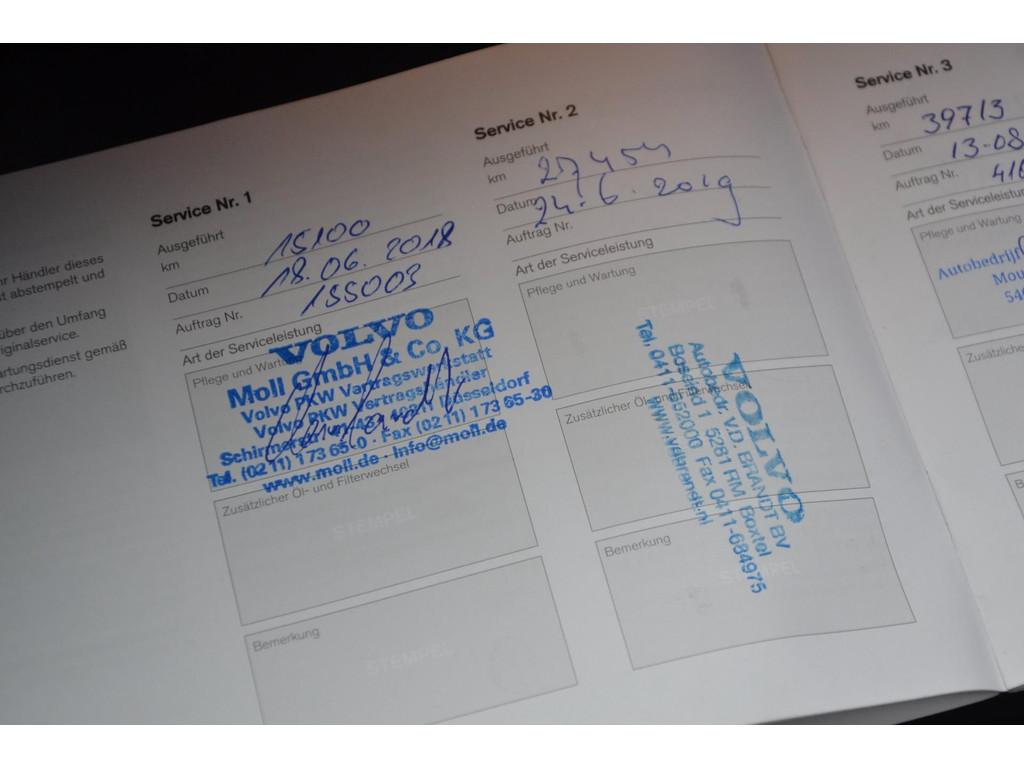 r Händler dieses
t abstempelt und
über den Umfang
iginalservice.
artungsdienst gemäß
rchzuführen.
Service Nr. 1
Ausgeführt
km 15100
Datum 18.06.2018
Auftrag Nr. 155003
Art der Serviceleistung
Pflege und Wartung
VOLVO
Moll GmbH & Co. KG
Volvo PKW Vertragswerkstatt
Volvo PKW Vertragshändler
Düsseldorf
Tel. (02 11) 1 73 65-0 · Fax (02 11) 1 73 65-30
www.moll.de · Info@moll.de
Zusätzlicher Öl- und Filterwechsel
STEMPEL
Bemerkung
STEMPEL
Service Nr. 2
Ausgeführt
km 27454
Datum 24.6.2019
Auftrag Nr.
Art der Serviceleistung
Pflege und Wartung
STEMPEL
Zusätzlicher Öl- und Filterwechsel
VOLVO
Autobedr. V.D. BRANDT BV
1 5281 RM Boxtel
Fax 0411-684975
Bemerkung
STEMPEL
Service Nr. 3
Ausgeführt
km 39713
Datum 13-08
Auftrag Nr. 416
Art der Serviceleistun
Pflege und Wartung
Autobedrijf
Mou
54
Zusätzlicher